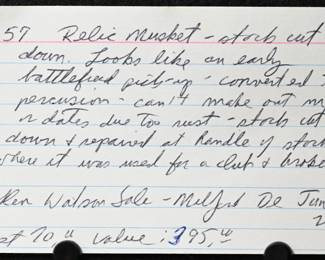 57 Relic Musket - stock cut
down. Looks like an early
battlefield pick-up - converted
percusion - can't make out m
n dates due too rust - stock cut
down & repaired at Handle of stock
where it was used for a club & broke
Watson Sale - Milford De Jun
st 70" value: 395,